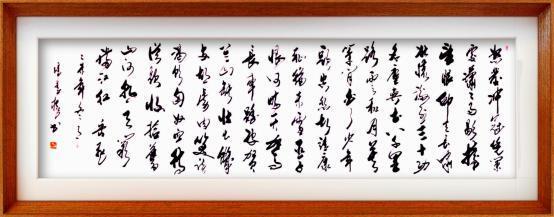 怒髮冲冠凭阑
處潇潇雨歇抬
望眼仰天长啸
壮懷激烈三十功
名塵與土八千里
路雲和月莫
等闲白了少年
頭空悲切靖康
耻猶未雪臣子
恨何时灭駕
長車踏破賀
兰山缺壮志饥
餐胡虜肉笑談
渴飲匈奴血待
從頭收拾舊
山河朝天闕
滿江红 岳飛